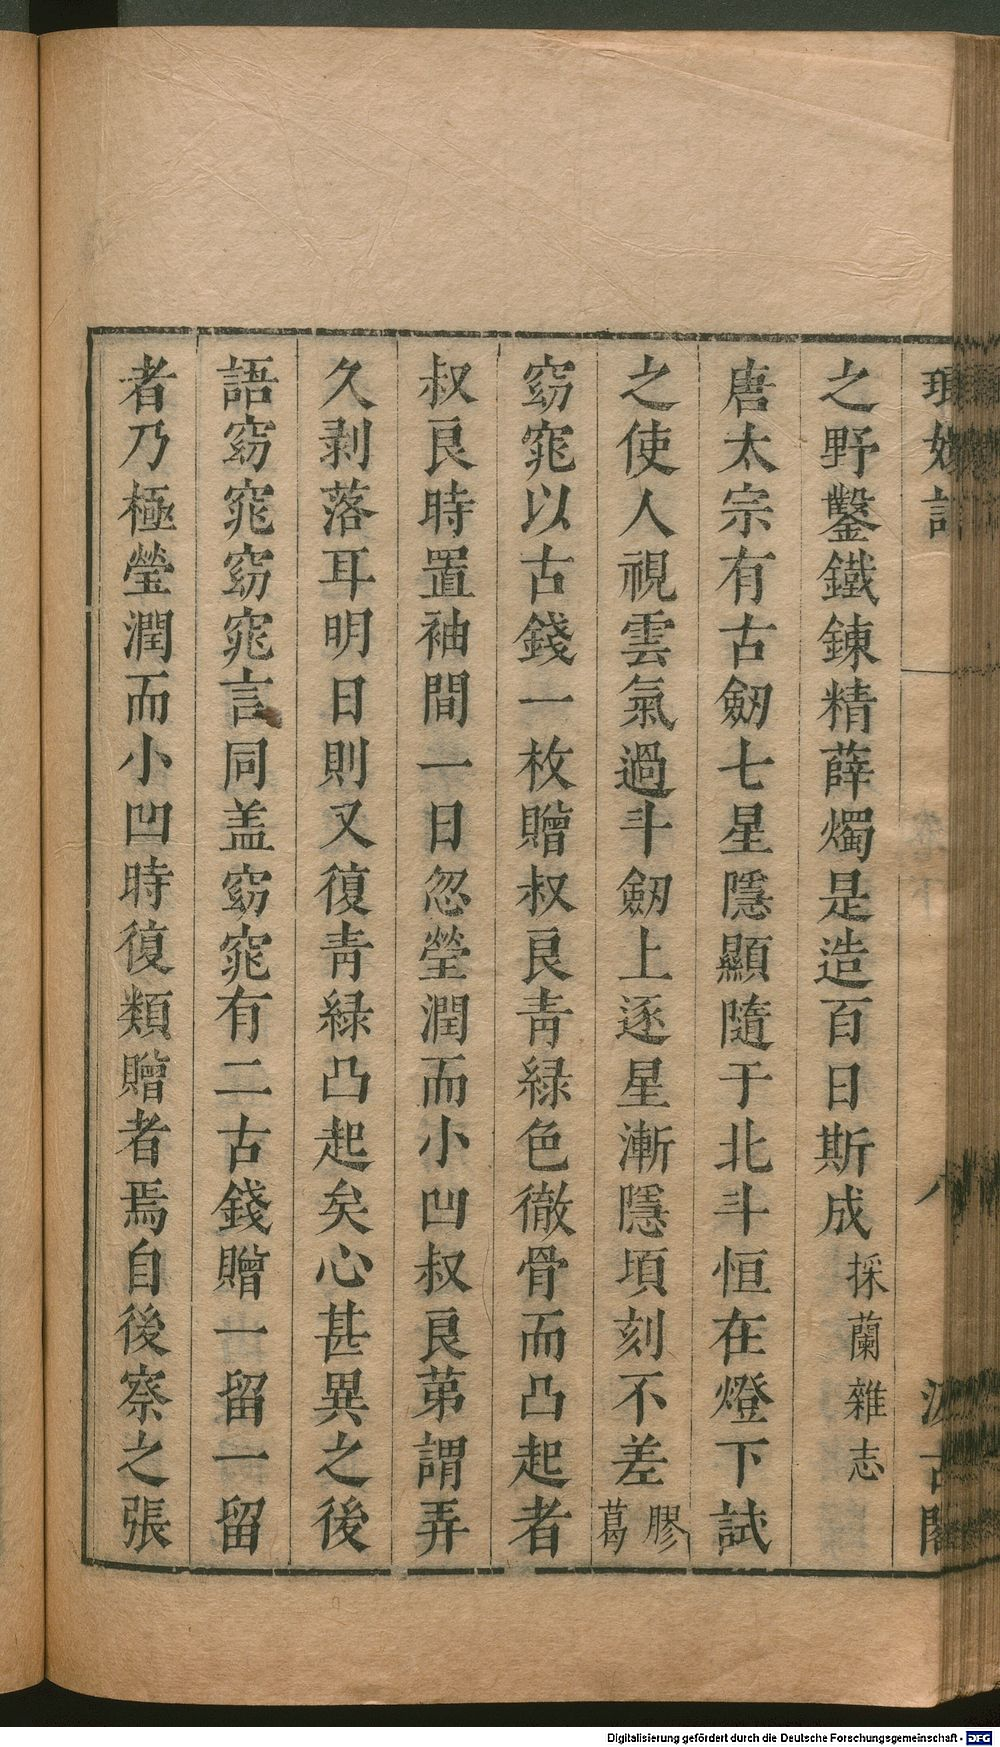 之野鑿鐵鍊精薛燭是造百日斯成採蘭雜志
唐太宗有古劒七星隱顯隨于北斗恒在燈下試
之使人視雲氣過斗劒上逐星漸隱項刻不差膠葛
窈窕以古錢一枚贈叔良青緑色徹骨而凸起者
叔良時置袖間一日忽瑩潤而小凹叔良苐謂弄
久剥落耳明日則又復青緑凸起矣心甚異之後
語窈窕窈窕言同盖窈窕有二古錢贈一留一留
者乃極瑩潤而小凹時復類贈者焉自後察之張
Digitalisierung gefördert durch die Deutsche Forschungsgemeinschaft - DFG